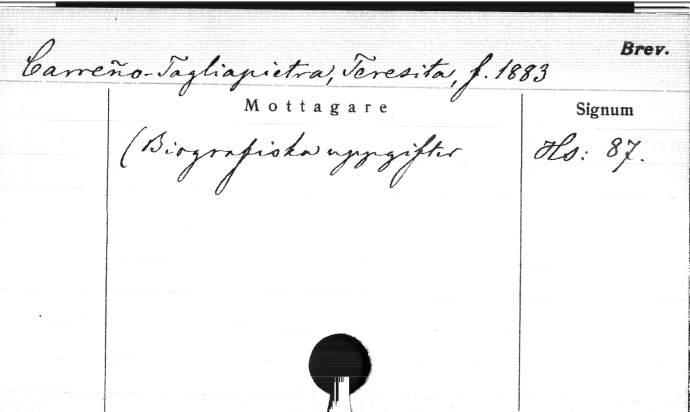 Brev.
Carreño-Tagliapietra, Teresita, f. 1883
Mottagare
Signum
(Biografiska uppgifter
Hs: 87.